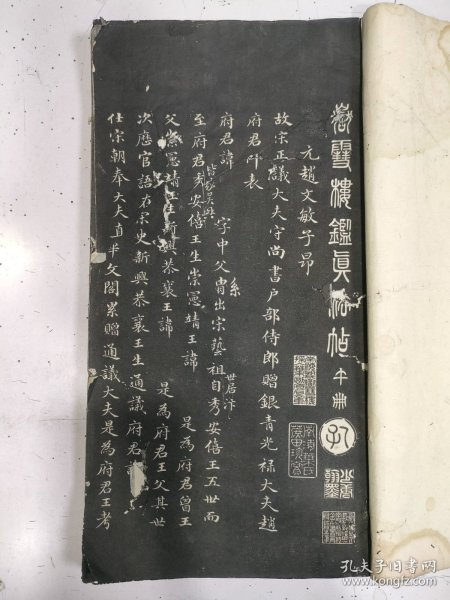 嶽雪樓鑑真法帖 午册
元趙文敏子昂
故宋正議大夫守尚書户部侍郎贈銀青光禄大夫趙
府君阡表
府君諱 字中父系胄出宋藝祖自秀安僖王五世而 世居汴
至府君秀安僖王生崇憲靖王諱 是為府君曾王 皆家吴興
父崇憲靖王生新興恭襄王諱 是為府君王父其世
次應官語在宋史新興恭襄王生通議府君
仕宋朝奉大夫直華文閣累贈通議大夫是為府君王考
孔
孔夫子旧书网
www.kongfz.com